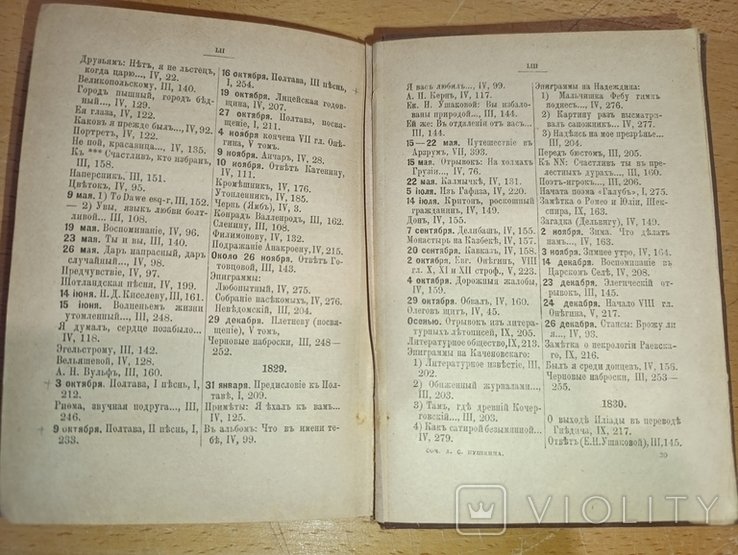 LII
Друзьямъ: Нѣтъ, я не льстецъ,
когда царю..., IV, 22.
Великопольскому, III, 140.
Городъ пышный, городъ бѣд-
ный..., IV, 129.
Ея глаза, IV, 122.
Каковъ я прежде былъ..., IV, 92.
Портретъ, IV, 122.
Не пой, красавица..., IV, 135.
Къ *** Счастливъ, кто избранъ,
III, 158.
Наперсникъ, III, 151.
Цвѣтокъ, IV, 95.
9 мая. 1) To Dawe esq-r, III, 152.
— 2) Увы, языкъ любви бол-
тливой... III, 108.
19 мая. Воспоминаніе, IV, 96.
23 мая. Ты и вы, III, 140.
26 мая. Даръ напрасный, даръ
случайный", IV, 98.
Предчувствіе, IV, 97.
Шотландская пѣсня, IV, 199.
14 іюня. Н. Д. Киселеву, III, 161.
15 іюня. Волненьемъ жизни
утомленный..., III, 248.
Я думалъ, сердце позабыло...
IV, 118.
Эгельстрому, III, 142.
Вельяшевой, IV, 128.
А. Н. Вульфъ, III, 160.
3 октября. Полтава, I пѣснь, I,
212.
Риема, звучная подруга..., III,
246.
9 октября. Полтава, II пѣснь, I,
233.
16 октября. Полтава, III пѣснь,
I, 254.
19 октября. Лицейская годов-
щина, IV, 207.
27 октября. Полтава, посвя-
щеніе, I, 211.
4 ноября кончена VII гл. Онѣ-
гина, V томъ.
9 ноября. Анчаръ, IV, 28.
10 ноября. Отвѣтъ Катенину,
IV, 111.
Кромѣшникъ, IV, 176.
Утопленникъ, IV, 185.
Чернь (Ямбъ), IV, 3.
Конрадъ Валленродъ, III, 162.
Сленину, III, 108.
Филимонову, IV, 132.
Подражаніе Анакреону, IV, 215.
Около 26 ноября. Отвѣтъ Го-
товцовой, III, 143.
Эпиграммы:
Любопытный, IV, 275.
Собраніе насѣкомыхъ, IV, 276.
Невѣдомскій, III, 204.
29 декабря. Плетневу (посвя-
щеніе), V томъ.
Черновые наброски, III, 248—
252.
1829.
31 января. Предисловіе къ Пол-
тавѣ, I, 209.
Примѣты: Я ѣхалъ къ вамъ..
IV, 125.
Въ альбомъ: Что въ имени те-
бѣ, IV, 99.
LIII
Я васъ любилъ..., IV, 99.
А. П. Кернъ, IV, 117.
Ек. Н. Ушаковой: Вы избало-
ваны природой..., III, 144.
Ей же: Въ отдаленіи отъ васъ...
III, 144.
15—22 мая. Путешествіе въ
Арзрумъ, VII, 393.
15 мая. Отрывокъ: На холмахъ
Грузіи..., IV, 76.
22 мая. Калмычкѣ, IV, 131.
5 іюля. Изъ Гафиза, IV, 220.
14 іюля. Критонъ, роскошный
гражданинъ, IV, 149.
Донъ, IV, 155.
7 сентября. Делибашъ, IV, 155.
Монастырь на Казбекѣ, IV, 157.
20 сентября. Кавказъ, IV, 158.
2 октября. Евг. Онѣгинъ, VIII
гл. X, XI и XII строф., V, 223.
4 октября. Дорожныя жалобы,
IV, 159.
29 октября. Обвалъ, IV, 160.
Олеговъ щитъ, IV, 45.
Осенью. Отрывокъ изъ литера-
турныхъ лѣтописей, IX, 205.
Литературное общество, IX, 213.
Эпиграммы на Каченовскаго:
1) Литературное извѣстіе, III,
202.
2) Обиженный журналами...,
III, 203.
3) Тамъ, гдѣ древній Кочер-
говскій..., III, 203.
4) Какъ сатирой безыменной...
IV, 279.
СОЧ. А. С. ПУШКИНА.
Эпиграммы на Надеждина:
1) Мальчишка Фебу гимнъ
поднесъ..., IV, 276.
2) Картину разъ высматри-
валъ сапожникъ..., IV, 277.
3) Надѣясь на мое презрѣнье...
III, 204.
Передъ бюстомъ, III, 205.
Къ NN: Счастливъ ты въ пре-
лестныхъ дурахъ..., III, 160.
Поэтъ-игрокъ..., III, 206.
Начата поэма «Галубъ», I, 275.
Замѣтка о Ромео и Юліи, Шек-
спира, IX, 163.
Загадка (Дельвигу), IV, 149.
2 ноября. Зима. Что дѣлать
намъ..., IV, 163.
3 ноября. Зимнее утро, IV, 164.
14 декабря. Воспоминаніе въ
Царскомъ Селѣ, IV, 208.
23 декабря. Элегическій от-
рывокъ, III, 145.
24 декабря. Начало VIII гл.
Онѣгина, V, 217.
26 декабря. Стансы: Брожу ли
я..., IV, 93.
Замѣтка о некрологіи Раевска-
го, IX, 216.
Былъ я среди донцевъ, IV, 156.
Черновые наброски, III, 253—
255.
1830.
О выходѣ Иліады въ переводѣ
Гнѣдича, IX, 217.
Отвѣтъ (Е. Н. Ушаковой), III, 145.
30
VIOLITY